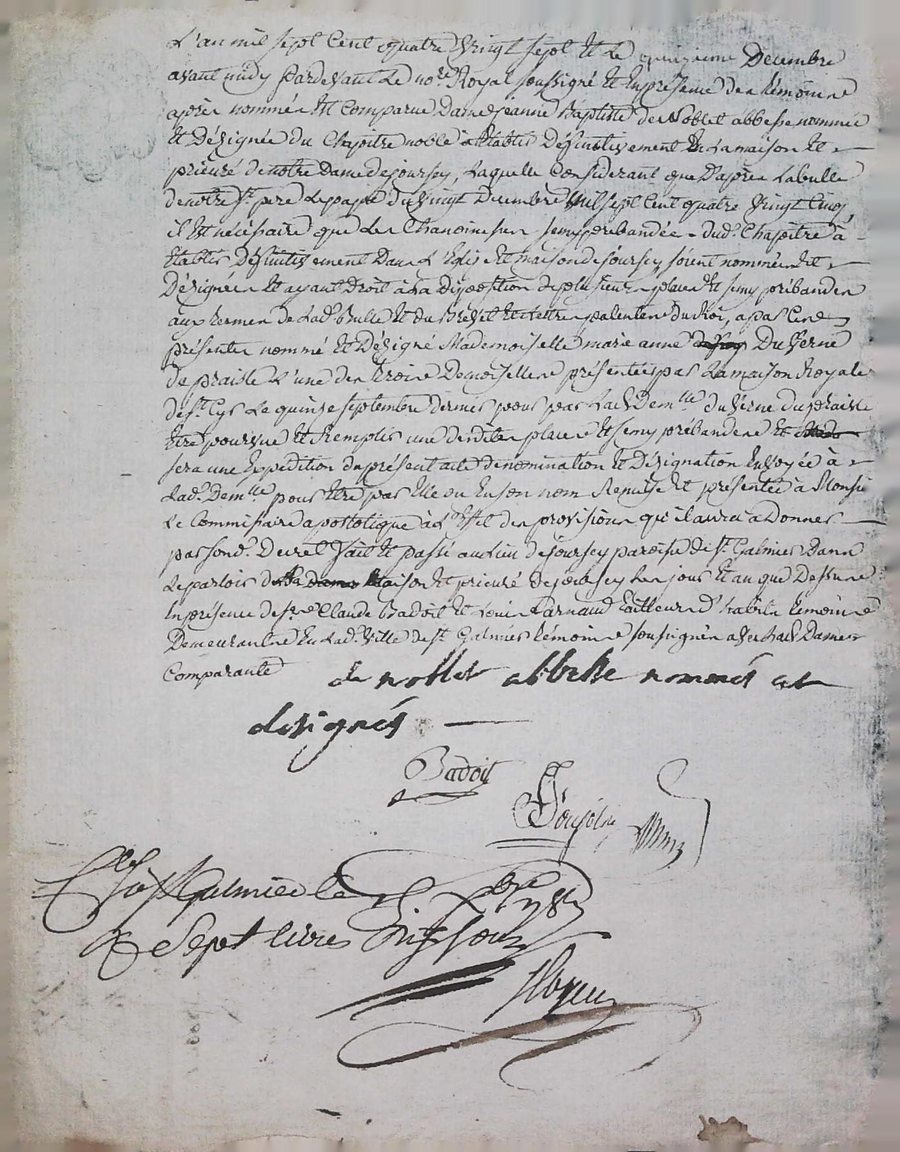 L'an mil sept Cent quatre Vingt sept Et Le quinzieme Decembre
avant midy pardevant Le no.re Royal soussigné Et En presence des temoins
apres nommés Est Comparue Dame jeanne Baptiste de Noblet abbesse nommée
Et Désignée du Chapitre noble à Etablir Définitivement En La maison Et
prieuré de notre Dame de joursey, Laquelle Considerant que D'après La bulle
de notre S.t pere Le pape du Vingt Decembre Mil sept Cent quatre Vingt Cinq,
il Est nécéssaire que Les Chanoinesses semy prebandées dud. Chapitre à
Etablir Définitivement Dans L'Eglise Et maison de joursey soient nommées Et
Désignées Et ayant Droit à La disposition de plusieurs places Et semy prébandes
aux termes de Lad. Bulle Et du Brevet Et Lettres patentes du Roi, a par Ces
présentes nommé Et Désigné Mademoiselle marie anne Du Verne
de praisle L'une des trois Demoiselles présentées par La maison Royale
de S.t Cyr Le quinze septembre dernier pour par Lad. Dem.lle du Verne du praisle
Etre pourvue Et Remplir une desdites places Et semy prébandes Et
sera une Expédition du présent acte de nomination Et Désignation Envoyée à
Lad. Dem.lle pour Etre par Elle ou En son nom Requise Et presentée à Monsi
Le Commissaire apostolique à L'Effet des provisions qu'il aura à Donner
par son d. Decret fait Et passé au Lieu de joursey paroisse de S.t Galmier Dans
Le parloir de maison Et prieuré de joursey Les jour Et an que Dessus
En présence de S.r Claude Badoit Et Louis Tailleur D'habits temoins
Demeurants En Lad. Ville de S.t Galmier temoins soussignés avec Lad. Dame
Comparante
de noblet abbesse nommés et
designés
Badoit
Galmier le 1787
sept livres dix sous